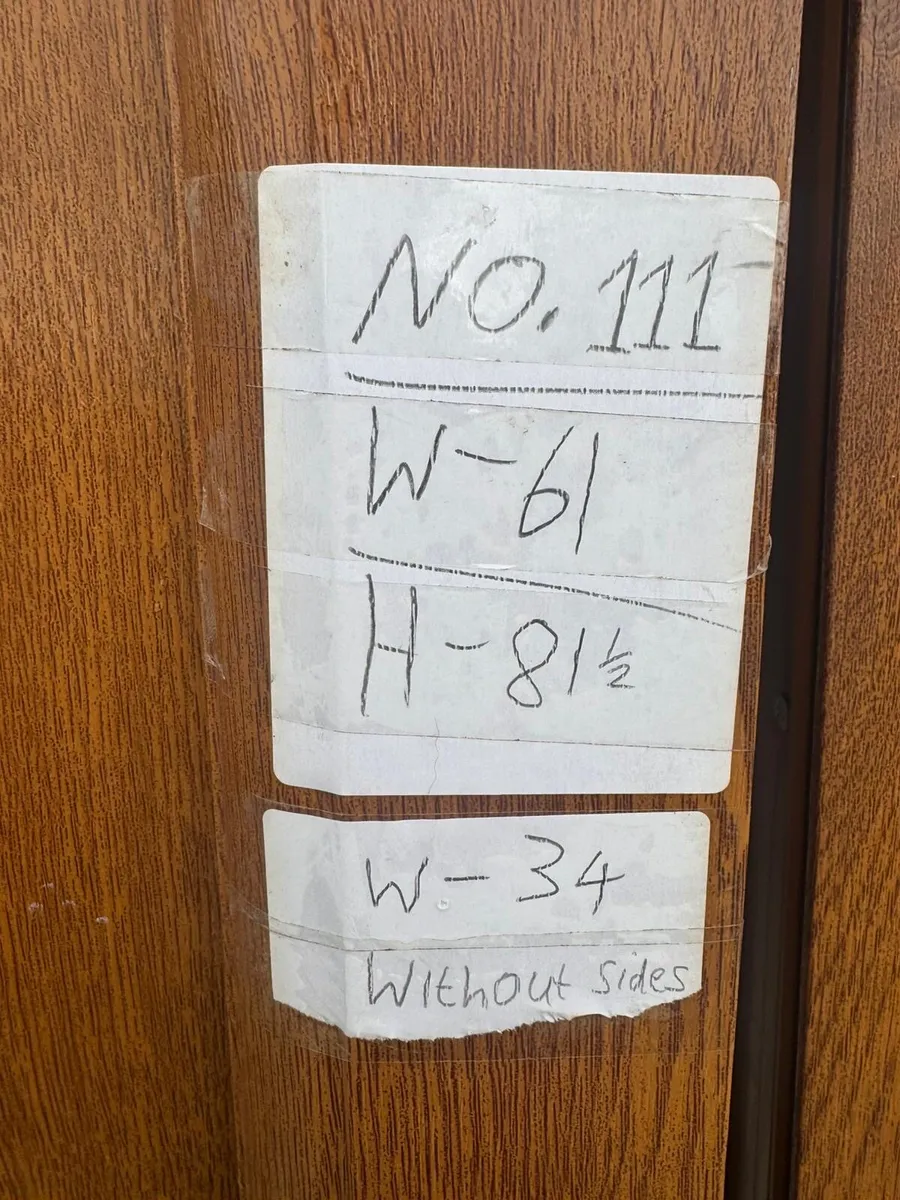 NO. 111
W-61
H-81½
W-34
Without sides